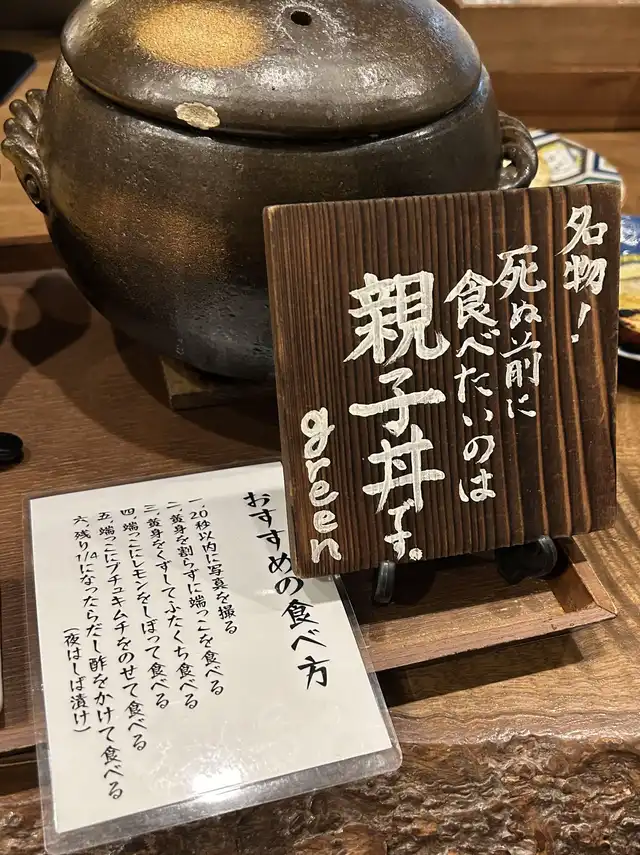 名物!
死ぬ前に
食べたいのは
親子丼です。
green
おすすめの食べ方
一、20秒以内に写真を撮る
二、黄身を割らずに端っこを食べる
三、黄身をくずしてふたくち食べる
四、端っこにレモンをしぼって食べる
五、端っこにプチュキムチをのせて食べる
六、残り1/4になったらだし酢をかけて食べる
(夜はしば漬け)